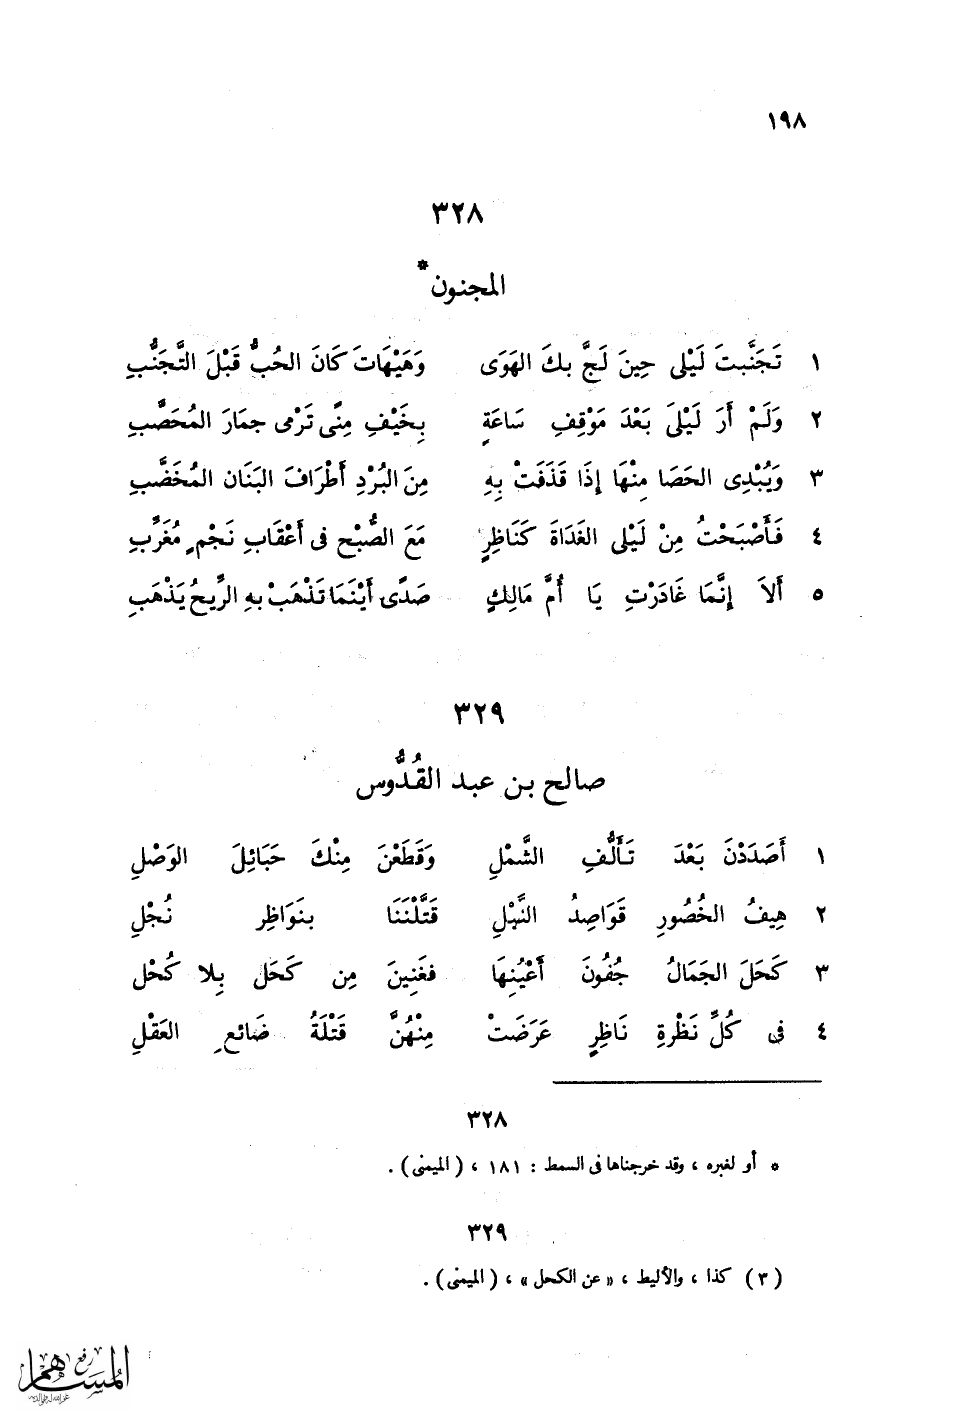 ١٩٨
٣٢٨
المجنون*
١ تَجَنَّبتَ لَيْلى حِينَ لَجَّ بكَ الهَوَى وَهَيْهَاتَ كَانَ الحُبُّ قَبْلَ التَّجَنُّبِ
٢ وَلَمْ أَرَ لَيْلَى بَعْدَ مَوْقِفِ سَاعَةٍ بِخَيْفِ مِنًى تَرْمى جمَارَ المُحَصَّبِ
٣ وَيُبْدِى الحَصَا مِنْهَا إِذَا قَذَفَتْ بِهِ مِنَ البُرْدِ أَطْرَافَ البَنَانِ المُخَضَّبِ
٤ فَأَصْبَحْتُ مِنْ لَيْلى الغَدَاةَ كَنَاظِرٍ مَعَ الصُّبْحِ فى أَعْقَابِ نَجْمٍ مُغَرِّبِ
٥ أَلاَ إِنَّمَا غَادَرْتِ يَا أُمَّ مَالِكٍ صَدًى أَيْنَمَا تَذْهَبْ بهِ الرِّيحُ يَذْهَبِ
٣٢٩
صالح بن عبد القُدُّوس
١ أَصَدَدْنَ بَعْدَ تَأَلُّفِ الشَّمْلِ وَقَطَعْنَ مِنْكَ حَبَائِلَ الوَصْلِ
٢ هِيفُ الخُصُورِ قَوَاصِدُ النَّبْلِ قَتَّلْنَنَا بنَوَاظِر نُجْلِ
٣ كَحَلَ الجَمَالُ جُفُونَ أَعْيُنِهَا فغَنِينَ مِن كَحَل بِلا كُحْل
٤ فى كُلِّ نَظْرةِ نَاظِرٍ عَرَضَتْ مِنْهُنَّ قَتْلَةُ ضَائع العَقْلِ
٣٢٨
* أو لغيره ، وقد خرجناها فى السمط : ١٨١ ، ( الميمنى ) .
٣٢٩
( ٣ ) كذا ، والأليط ، « عن الكحل » ، ( الميمنى ) .
رفع
المساهم
غفر الله له ولوالديه